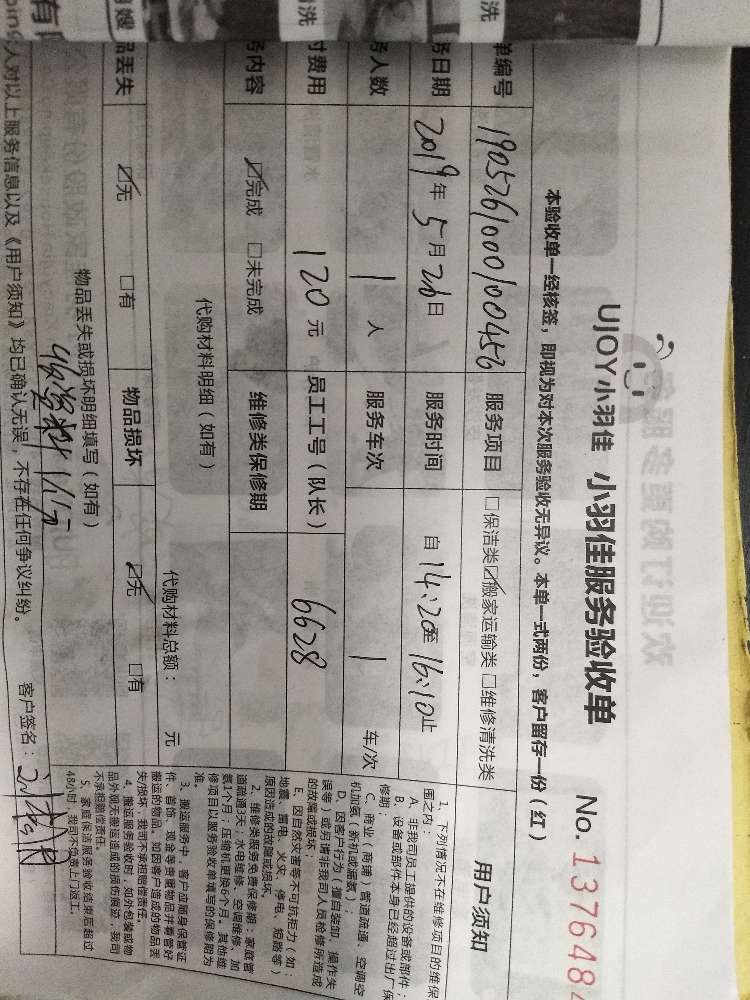 UJOY小羽佳 小羽佳服务验收单
No. 137648
本验收单一经核签，即视为对本次服务验收无异议。本单一式两份，客户留存一份（红）
单编号 190526100010045 服务项目 □保洁类☑搬家运输类 □维修清洗类
务日期 2019年5月26日 服务时间 自14:20至16:10止
务人数 1人 服务车次 1 车/次
付费用 120元 员工工号（队长） 6628
务内容 ☑完成 □未完成 维修类保修期
代购材料明细（如有）
代购材料总额： 元
品丢失 ☑无 □有 物品损坏 ☑无 □有
物品丢失或损坏明细填写（如有）
人对以上服务信息以及《用户须知》均已确认无误，不存在任何争议纠纷。
客户签名：
用户须知
1、下列情况不在维修项目的维保
围之内：
A、非我司员工提供的设备或部件；
B、设备或部件本身已经超过出厂保
修期；
C、商业（商铺）管道疏通、空调空
机加氨（新机或漏氨）；
D、因客户行为（擅自装卸、操作失
误等）或加请非我司人员检修所造成
的故障或损坏；
E、因自然灾害等不可抗拒力（如：
地震、雷电、火灾、停电、短路等）
原因造成的故障或损坏。
2、维修类服务免费保修期：家庭管
道疏通3天；水电维修、空调维修、加
氨1个月；压缩机更换6个月。其他维
修项目以服务验收单填写的保修期为
准。
3、搬运服务中，客户应随身保管证
件、首饰、现金等贵重物品并看管好
搬运的物品，如因客户造成的物品丢
失/损坏，我司不承担赔偿责任。
4、搬运服务验收时，如外包装或物
品外观无搬运造成的损伤痕迹，我司
不承担赔偿责任。
5、家庭保洁服务验收结束后超过
48小时，我司不负责上门返工。